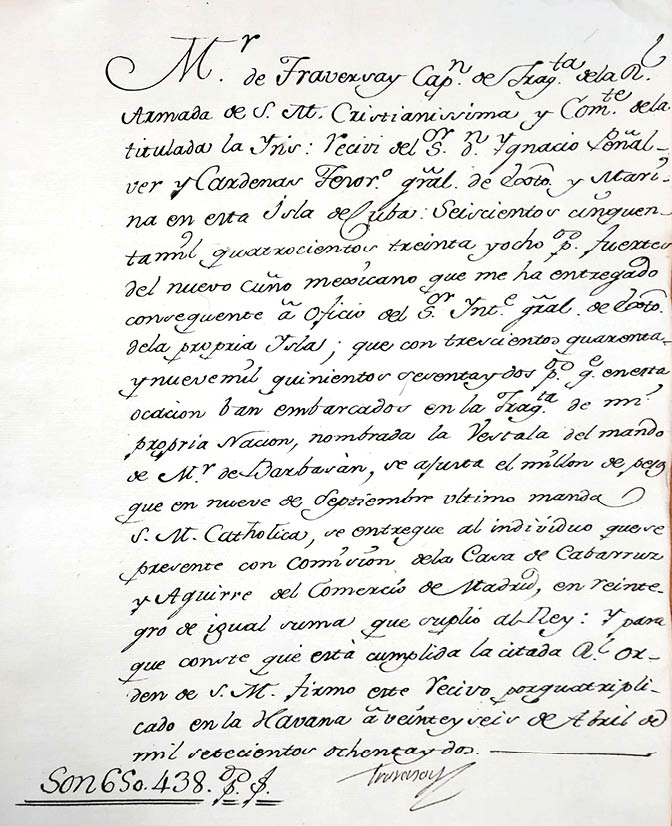 M.r de Traversay Cap.n de Frag.ta de la R.l
Armada de S. M. Cristianissima y Com.te de la
titulada la Yris: Recivi del S.or D.n Ygnacio Peñal-
ver y Cardenas Tenor.o gral. de Exto. y Mari-
na en esta Isla de Cuba: Seiscientos cinquen-
ta mil quatrocientos treinta y ocho p.os fuertes
del nuevo Cuño mexicano que me ha entregado
consequente â Oficio del S.or Int.e gral. de Exto.
dela propria Isla; que con trescientos quarenta
y nueve mil quinientos sesenta y dos p.os q.e en esta
ocacion ban embarcados en la Frag.ta de mi
propria Nacion, nombrada la Vestala del mando
de M.r de Barbasàn, se ajusta el millon de pesos
que en nueve de Septiembre ultimo manda
S. M. Catholica, se entregue al individuo que se
presente con Comision de la Casa de Cabarrus
y Aguirre del Comercio de Madrid, en reinte-
gro de igual suma que suplio al Rey: Y para
que conste que està cumplida la citada R.l Or-
den de S. M. firmo este Recivo por quatripli-
cado en la Havana â veinte y seis de Abril de
mil setecientos ochenta y dos.
Son 650.438. p.os f.
Traversay